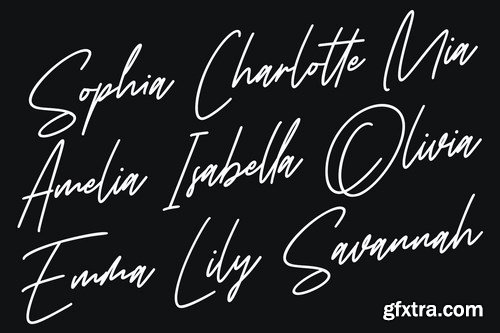 Sophia Charlotte Mia
Amelia Isabella Olivia
Emma Lily Savannah
gfxtra.com